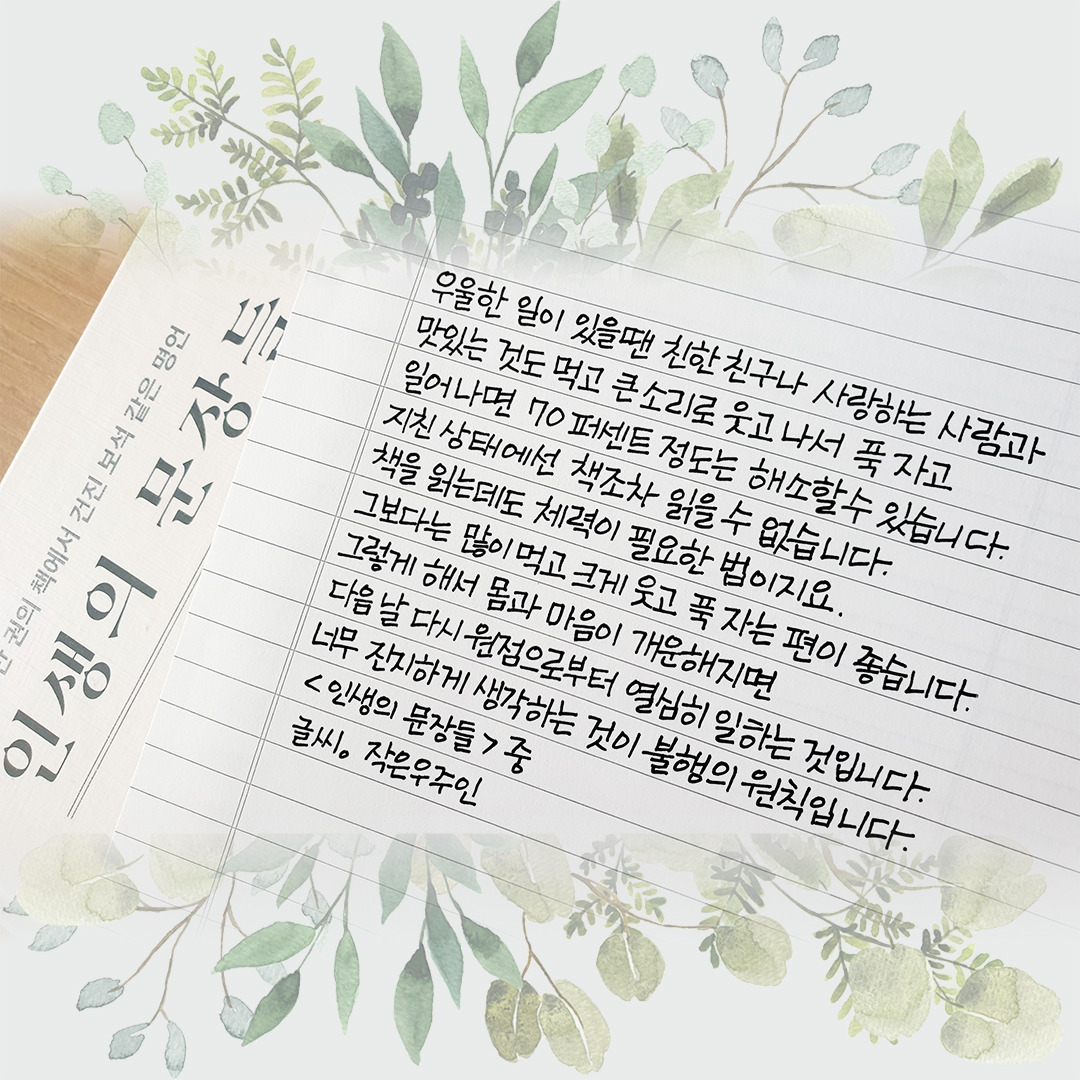 우울한 일이 있을땐 친한 친구나 사랑하는 사람과
맛있는 것도 먹고 큰소리로 웃고 나서 푹 자고
일어나면 70퍼센트 정도는 해소할수 있습니다.
지친 상태에선 책조차 읽을 수 없습니다.
책을 읽는데도 체력이 필요한 법이지요.
그보다는 많이 먹고 크게 웃고 푹 자는 편이 좋습니다.
그렇게 해서 몸과 마음이 개운해지면
다음 날 다시 원점으로부터 열심히 일하는 것입니다.
너무 진지하게 생각하는 것이 불행의 원칙입니다.
<인생의 문장들> 중
글씨。 작은우주인
권의 책에서 건진 보석 같은 명언
인생의 문장들